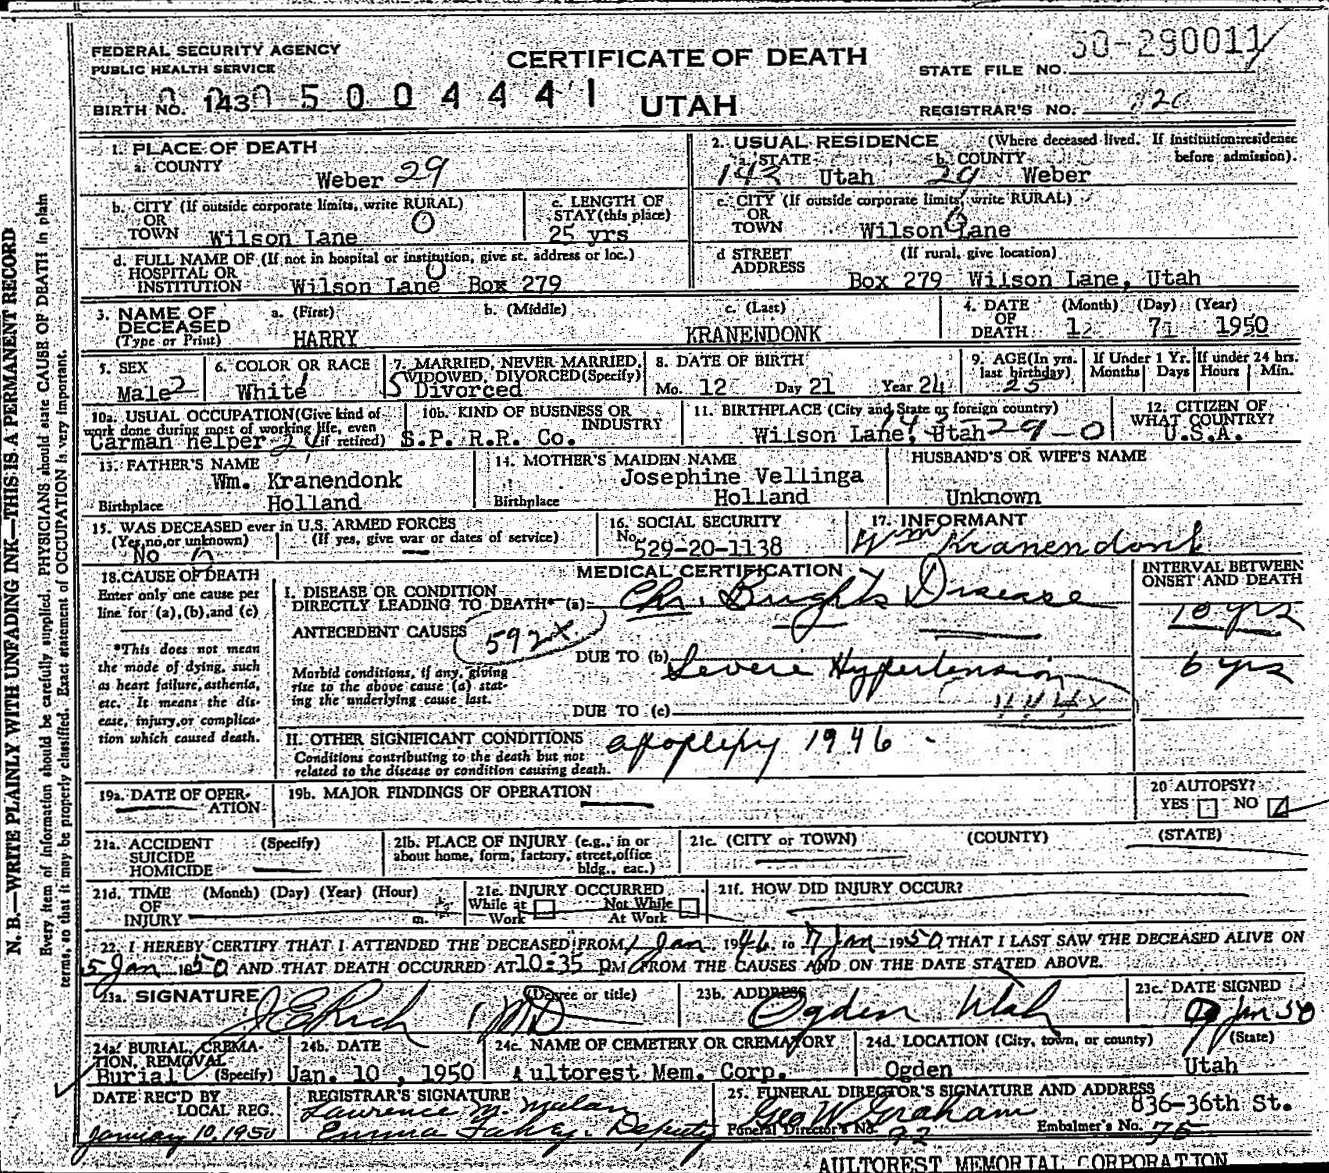 FEDERAL SECURITY AGENCY
PUBLIC HEALTH SERVICE
BIRTH NO. 143
5 0 0 4 4 4 1
CERTIFICATE OF DEATH
UTAH
STATE FILE NO. 50-290011
REGISTRAR'S NO.
N. B.—WRITE PLAINLY WITH UNFADING INK—THIS IS A PERMANENT RECORD
Every item of information should be carefully supplied. PHYSICIANS should state CAUSE OF DEATH in plain
terms, so that it may be properly classified. Exact statement of OCCUPATION is very important.
1. PLACE OF DEATH
a. COUNTY
Weber 29
2. USUAL RESIDENCE (Where deceased lived. If institution: residence before admission).
a. STATE b. COUNTY
143 Utah 29 Weber
b. CITY (If outside corporate limits, write RURAL)
OR
TOWN Wilson Lane 0
c. LENGTH OF
STAY (this place)
25 yrs
c. CITY (If outside corporate limits, write RURAL)
OR
TOWN Wilson Lane 0
d. FULL NAME OF (If not in hospital or institution, give st. address or loc.)
HOSPITAL OR
INSTITUTION Wilson Lane Box 279 0
d STREET (If rural, give location)
ADDRESS Box 279 Wilson Lane, Utah
3. NAME OF
DECEASED
(Type or Print)
a. (First) b. (Middle) c. (Last)
HARRY KRANENDONK
4. DATE (Month) (Day) (Year)
OF
DEATH 1 7 1950
5. SEX
Male 2
6. COLOR OR RACE
White 1
7. MARRIED, NEVER MARRIED,
WIDOWED, DIVORCED (Specify)
5 Divorced
8. DATE OF BIRTH
Mo. 12 Day 21 Year 24
9. AGE (In yrs.
last birthday)
25
If Under 1 Yr.
Months Days
If under 24 hrs.
Hours Min.
10a. USUAL OCCUPATION (Give kind of
work done during most of working life, even
if retired)
Carman helper
10b. KIND OF BUSINESS OR
INDUSTRY
S.P. R.R. Co.
11. BIRTHPLACE (City and State or foreign country)
Wilson Lane, Utah 29-0
12. CITIZEN OF
WHAT COUNTRY?
U.S.A.
13. FATHER'S NAME
Wm. Kranendonk
Birthplace Holland
14. MOTHER'S MAIDEN NAME
Josephine Vellinga
Birthplace Holland
HUSBAND'S OR WIFE'S NAME
Unknown
15. WAS DECEASED ever in U.S. ARMED FORCES
(Yes, no, or unknown) (If yes, give war or dates of service)
No
16. SOCIAL SECURITY
No.
529-20-1138
17. INFORMANT
Wm Kranendonk
18. CAUSE OF DEATH
Enter only one cause per
line for (a), (b), and (c)
*This does not mean
the mode of dying, such
as heart failure, asthenia,
etc. It means the dis-
ease, injury, or complica-
tion which caused death.
MEDICAL CERTIFICATION
INTERVAL BETWEEN
ONSET AND DEATH
I. DISEASE OR CONDITION
DIRECTLY LEADING TO DEATH* (a) Chr. Brights Disease 10 yrs
ANTECEDENT CAUSES 592x
Morbid conditions, if any, giving
rise to the above cause (a) stat-
ing the underlying cause last.
DUE TO (b) Severe Hypertension 6 yrs
DUE TO (c) 444x
II. OTHER SIGNIFICANT CONDITIONS
Conditions contributing to the death but not
related to the disease or condition causing death.
apoplexy 1946.
19a. DATE OF OPER-
ATION
19b. MAJOR FINDINGS OF OPERATION
20 AUTOPSY?
YES NO
21a. ACCIDENT (Specify)
SUICIDE
HOMICIDE
21b. PLACE OF INJURY (e.g., in or
about home, form, factory, street, office
bldg., eac.)
21c. (CITY or TOWN) (COUNTY) (STATE)
21d. TIME (Month) (Day) (Year) (Hour)
OF
INJURY m.
21e. INJURY OCCURRED
While at Work Not While At Work
21f. HOW DID INJURY OCCUR?
22. I HEREBY CERTIFY THAT I ATTENDED THE DECEASED FROM 1 Jan 1946 to 7 Jan 1950 THAT I LAST SAW THE DECEASED ALIVE ON
5 Jan 1950 AND THAT DEATH OCCURRED AT 10:35 pM FROM THE CAUSES AND ON THE DATE STATED ABOVE.
23a. SIGNATURE (Degree or title)
J E Rich MD
23b. ADDRESS
Ogden Utah
23c. DATE SIGNED
9 Jan 50
24a. BURIAL, CREMA-
TION, REMOVAL
(Specify)
Burial
24b. DATE
Jan. 10, 1950
24c. NAME OF CEMETERY OR CREMATORY
Aultorest Mem. Corp.
24d. LOCATION (City, town, or county) (State)
Ogden Utah
DATE REC'D BY
LOCAL REG.
January 10, 1950
REGISTRAR'S SIGNATURE
Lawrence M. Malan
Emma Deputy
25. FUNERAL DIRECTOR'S SIGNATURE AND ADDRESS
Geo W. Graham 836-36th St.
Funeral Director's No. 92 Embalmer's No. 75
AULTOREST MEMORIAL CORPORATION